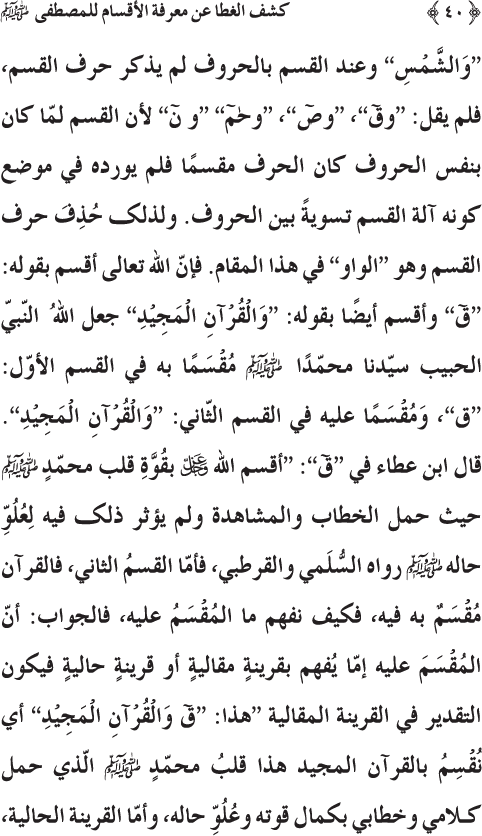 ﴿٤٠﴾ كشف الغطا عن معرفة الأقسام للمصطفى ﷺ
”وَالشَّمْسِ“ وعند القسم بالحروف لم يذكر حرف القسم،
فلم يقل: ”وقٓ“، ”وصٓ“، ”وحٰمٓ“ ”و نٓ“ لأن القسم لمّا كان
بنفس الحروف كان الحرف مقسمًا فلم يورده في موضع
كونه آلة القسم تسويةً بين الحروف. ولذلك حُذِفَ حرف
القسم وهو ”الواو“ في هذا المقام. فإنّ الله تعالى أقسم بقوله:
”قٓ“ وأقسم أيضًا بقوله: ”وَالْقُرْآنِ الْمَجِيْدِ“ جعل اللهُ النّبيّ
الحبيب سيّدنا محمّدًا ﷺ مُقْسَمًا به في القسم الأوّل:
”ق“، وَمُقْسَمًا عليه في القسم الثّاني: ”وَالْقُرْآنِ الْمَجِيْدِ“.
قال ابن عطاء في ”قٓ“: ”أقسم الله ﷻ بقُوَّةِ قلب محمّدٍ ﷺ
حيث حمل الخطاب والمشاهدة ولم يؤثر ذلك فيه لِعُلُوِّ
حاله ﷺ رواه السُّلَمي والقرطبي، فأمّا القسمُ الثاني، فالقرآن
مُقْسَمٌ به فيه، فكيف نفهم ما المُقْسَمُ عليه، فالجواب: أنّ
المُقْسَمَ عليه إمّا يُفهم بقرينةٍ مقاليةٍ أو قرينةٍ حاليةٍ فيكون
التقدير في القرينة المقالية ”هذا: ”قٓ وَالْقُرْآنِ الْمَجِيْدِ“ أي
نُقْسِمُ بالقرآن المجيد هذا قلبُ محمّدٍ ﷺ الّذي حمل
كلامي وخطابي بكمال قوته وعُلُوِّ حاله، وأمّا القرينة الحالية،